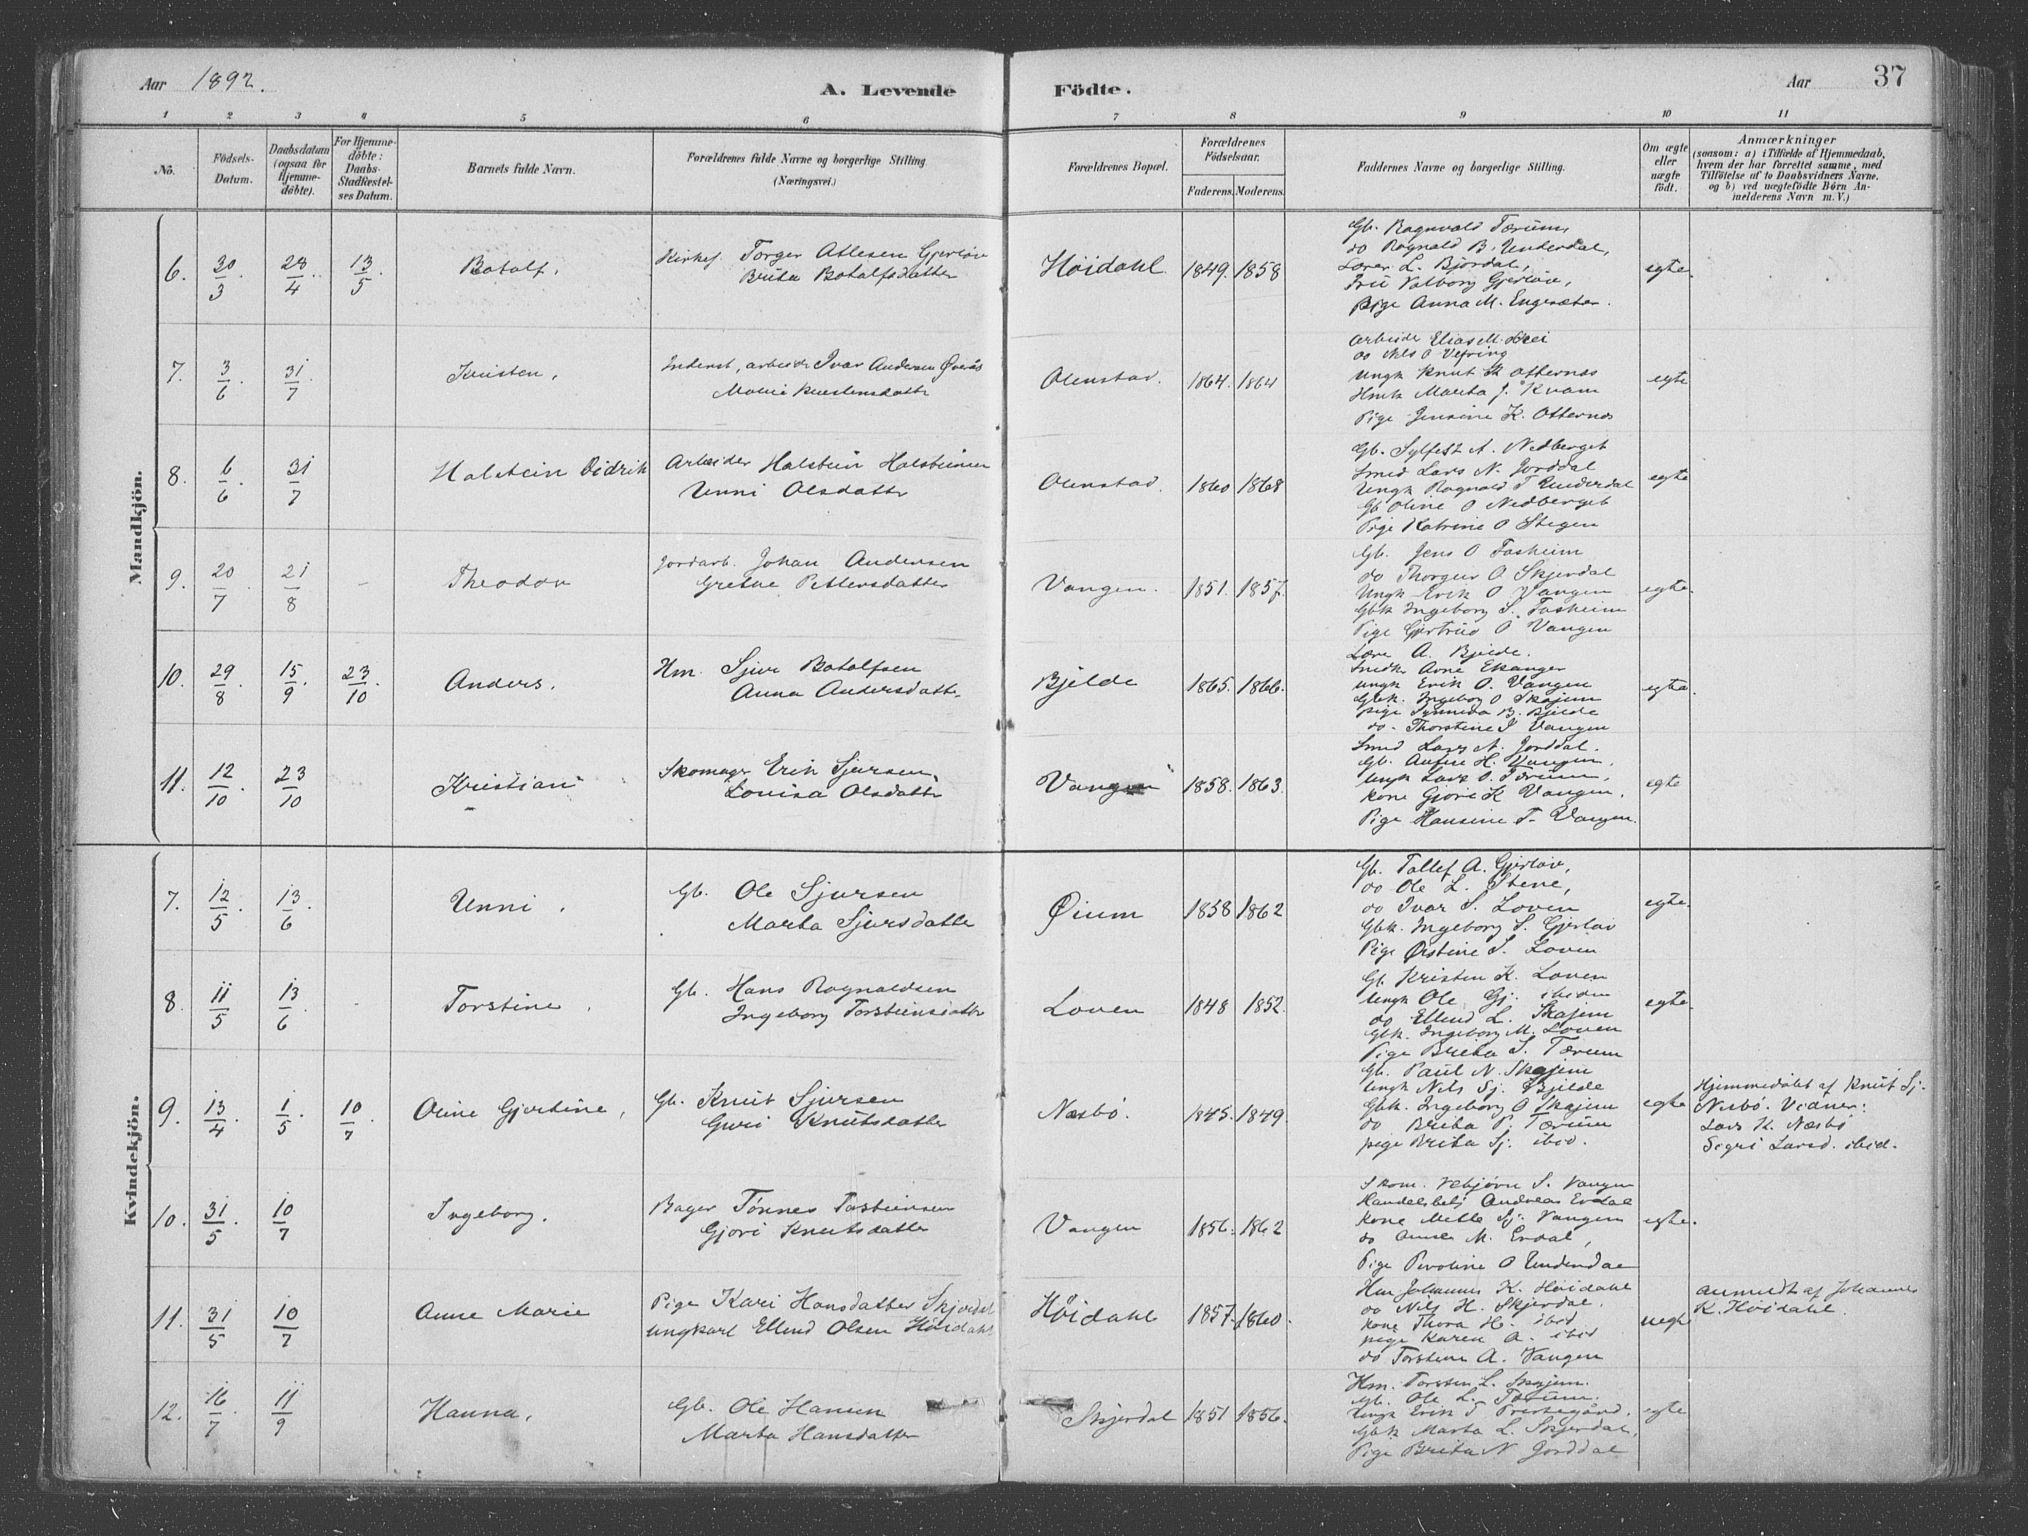 Aar 1892.
A. Levende Födte.
Aar
37
1 2 3 4 5 6 7 8 9 10 11
No.
Födsels-Datum.
Daabsdatum (ogsaa for Hjemme-döbte).
For Hjemme-döbte: Daabs-Stadfæstel-ses Datum.
Barnets fulde Navn.
Forældrenes fulde Navne og borgerlige Stilling
(Næringsvei.)
Forældrenes Bopæl.
Forældrenes Födselsaar.
Faderens. Moderens.
Faddernes Navne og borgerlige Stilling.
Om ægte eller uægte födt.
Anmærkninger
(saasom: a) i Tilfælde af Hjemmedaab, hvem der har forrettet samme, med Tilföielse af to Daabsvidners Navne. og b) ved uægtefödte Börn An-melderens Navn m. V.)
Mandkjön.
6. 30/3. 24/4. 13/5. Botolf.
Kirkesj Torger Atlesen Gjerløw
Brita Botolfsdatter
Høidahl. 1849. 1858
Gb. Ragnvald Tærum,
do Rognald B. Underdal,
Lærer L. Bjørdal,
Fru Valborg Gjerløw,
Pige Anna M. Engesæter.
egte.
7. 3/6 31/7. Kristen,
Inderst, arbeider Ivar Andersen Øverås
Malie Kristensdatter
Olenstad. 1864. 1864
Arbeider Elias M. Hei
do Nils O Vetring
Ungk Knut K Otternes
Hmk Marta J. Kvam
Pige Jensine K. Otternes
egte
8. 6/6 31/7 Halstein Didrik
Arbeider Halstein Halsteinsen
Unni Olsdatter
Olenstad. 1860 1868
Gb. Sylfest A. Nedberget
Smed Lars N. Jorddal
Ungk Rognald T Underdal
Gb Oline O Nedberget
Pige Katrine O Stegen
egte
9. 20/7 21/8 - Theodor
Jordarb. Johan Andersen
Grethe Pettersdatter
Vangen. 1851. 1857.
Gb. Jens O Fosheim
do Thorgeir O Skjerdal
Ungk Erik O Vangen
Gbk Ingeborg S. Fosheim
Pige Gjertrud O Vangen
egte.
10. 29/8. 15/9. 23/10. Anders.
Hm. Sjur Botolfsen
Anna Andersdatter
Bjelde 1865. 1866.
Lærer A. Bjelde.
Smedk Arne Ekanger
ungk Erik O. Vangen
Gbk. Ingeborg O Skajem
pige Synneva B. Bjelde
do. Thorstine J Vangen
egte
11. 12/10. 23/10 Kristian
Skomagr Erik Sjursen,
Lovisa Olsdatter
Vangen 1858. 1863.
Smed Lars N. Jorddal.
Gb. Anfin H. Vangen,
ungk Lars O. Tærum,
kone Gjøri K Vangen,
Pige Hansine T. Vangen.
egte
Kvindekjön.
7. 12/5. 13/6. Unni.
Gb. Ole Sjursen
Marta Sjursdatter
Øium 1858 1862
Gb. Tollef A. Gjerløw,
do Ole L. Stene,
do Ivar S. Loven
Gbk. Ingeborg S. Gjerløw
Pige Ørstine S. Loven
egte.
8 11/5 13/6 - Torstine.
Gb. Hans Rognaldsen
Ingeborg Torsteinsdatter
Loven 1848 1852.
Gb. Kristen K. Loven
Ungk Ole Gj. ibiden
do Ellend L. Skajem
Gbk. Ingeborg M. Loven
Pige Brita S. Tærum
egte
9. 13/4. 1/5 10/7. Oline Gjertine,
Gb. Knut Sjursen
Guri Knutsdatter
Næsbø. 1845. 1849.
Gb. Paul N. Skajem
Ungk Nils Sj. Bjelde
Gbk. Ingeborg O Skajem
do Brita P. Tærum
pige Brita Sj. ibid.
egte
Hjemmedøbt af Knut Sj.
Nesbø. Vidner:
Lars K. Næsbø
Sigri Larsd. ibid.
10. 31/5. 10/7 Ingeborg.
Bager Tønnes Tostensen
Gjøri Knutsdatter
Vangen 1856. 1862
Skom. Vebjørn S. Vangen
Handelsbetj Andreas Evdal
kone Mette Sj. Vangen
do Anna M. Evdal,
Pige Peroline O Underdal
egte.
11. 31/5 10/7 Anne Marie
Pige Kari Hansdatter Skjerdal
ungkarl Ellend Olsen Høidahl
Høidahl 1857. 1860.
Hm Johannes K. Høidahl
do Nils H. Skjerdal,
kone Thora H. ibid
pige Karen A. ibid
do Torstine A. Vangen
uegte
Anmeldt af Johannes
K. Høidahl.
12. 16/7. 11/9 Hanna,
Gb. Ole Hansen
Marta Hansdatter
Skjerdal 1851 1856.
Hm. Torsten L. Skajem.
Gb. Ole L. Tærum.
Ungk Erik J Prestegård,
Gbk Marta L. Skjerdal,
Pige Brita N Jorddal
egte